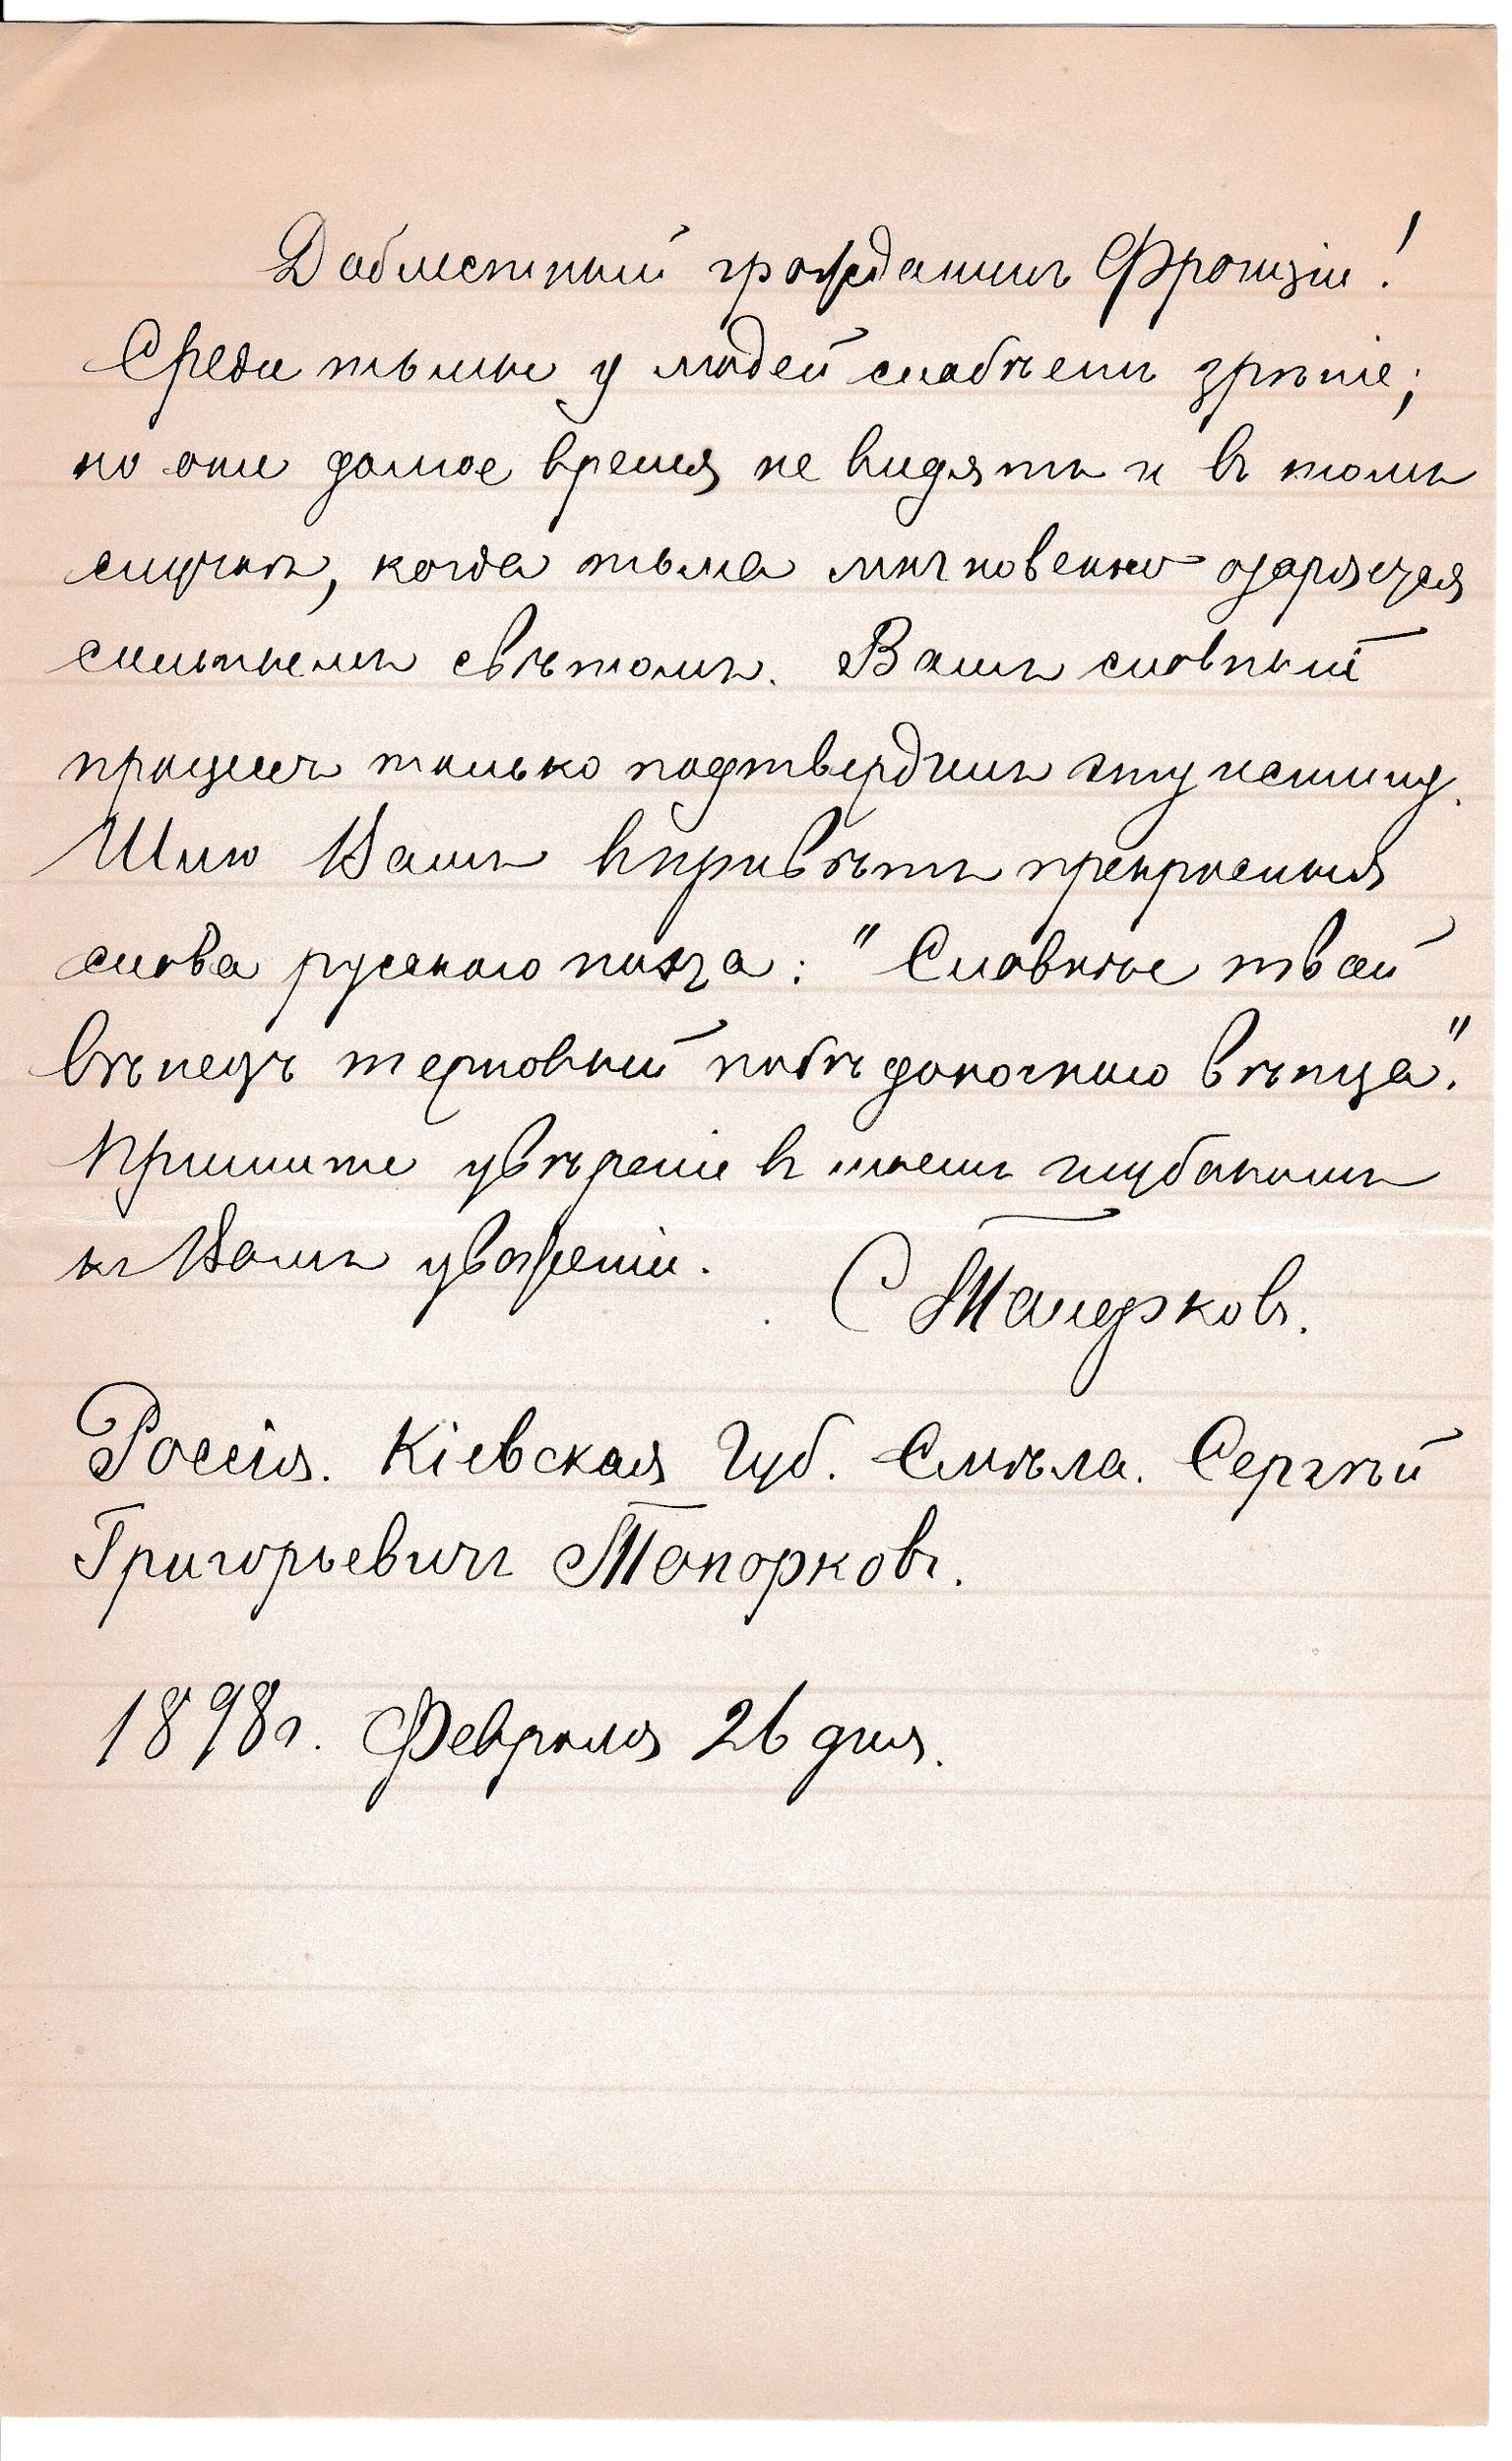 Доблестный гражданинъ Франціи!
Среди тьмы у людей слабѣетъ зрѣніе;
но они долгое время не видятъ и въ томъ
случаѣ, когда тьма мгновенно озаряется
сильнымъ свѣтомъ. Вашъ славный
процессъ только подтвердилъ эту истину.
Шлю Вамъ въ привѣтъ прекрасныя
слова русскаго поэта: "Славнѣе твой
вѣнецъ терновый побѣдоноснаго вѣнца".
Примите увѣреніе въ моемъ глубокомъ
къ Вамъ уваженіи.
С Топорковъ.
Россія. Кіевская Губ. Смѣла. Сергѣй
Григорьевичъ Топорковъ.
1898 г. Февраля 26 дня.